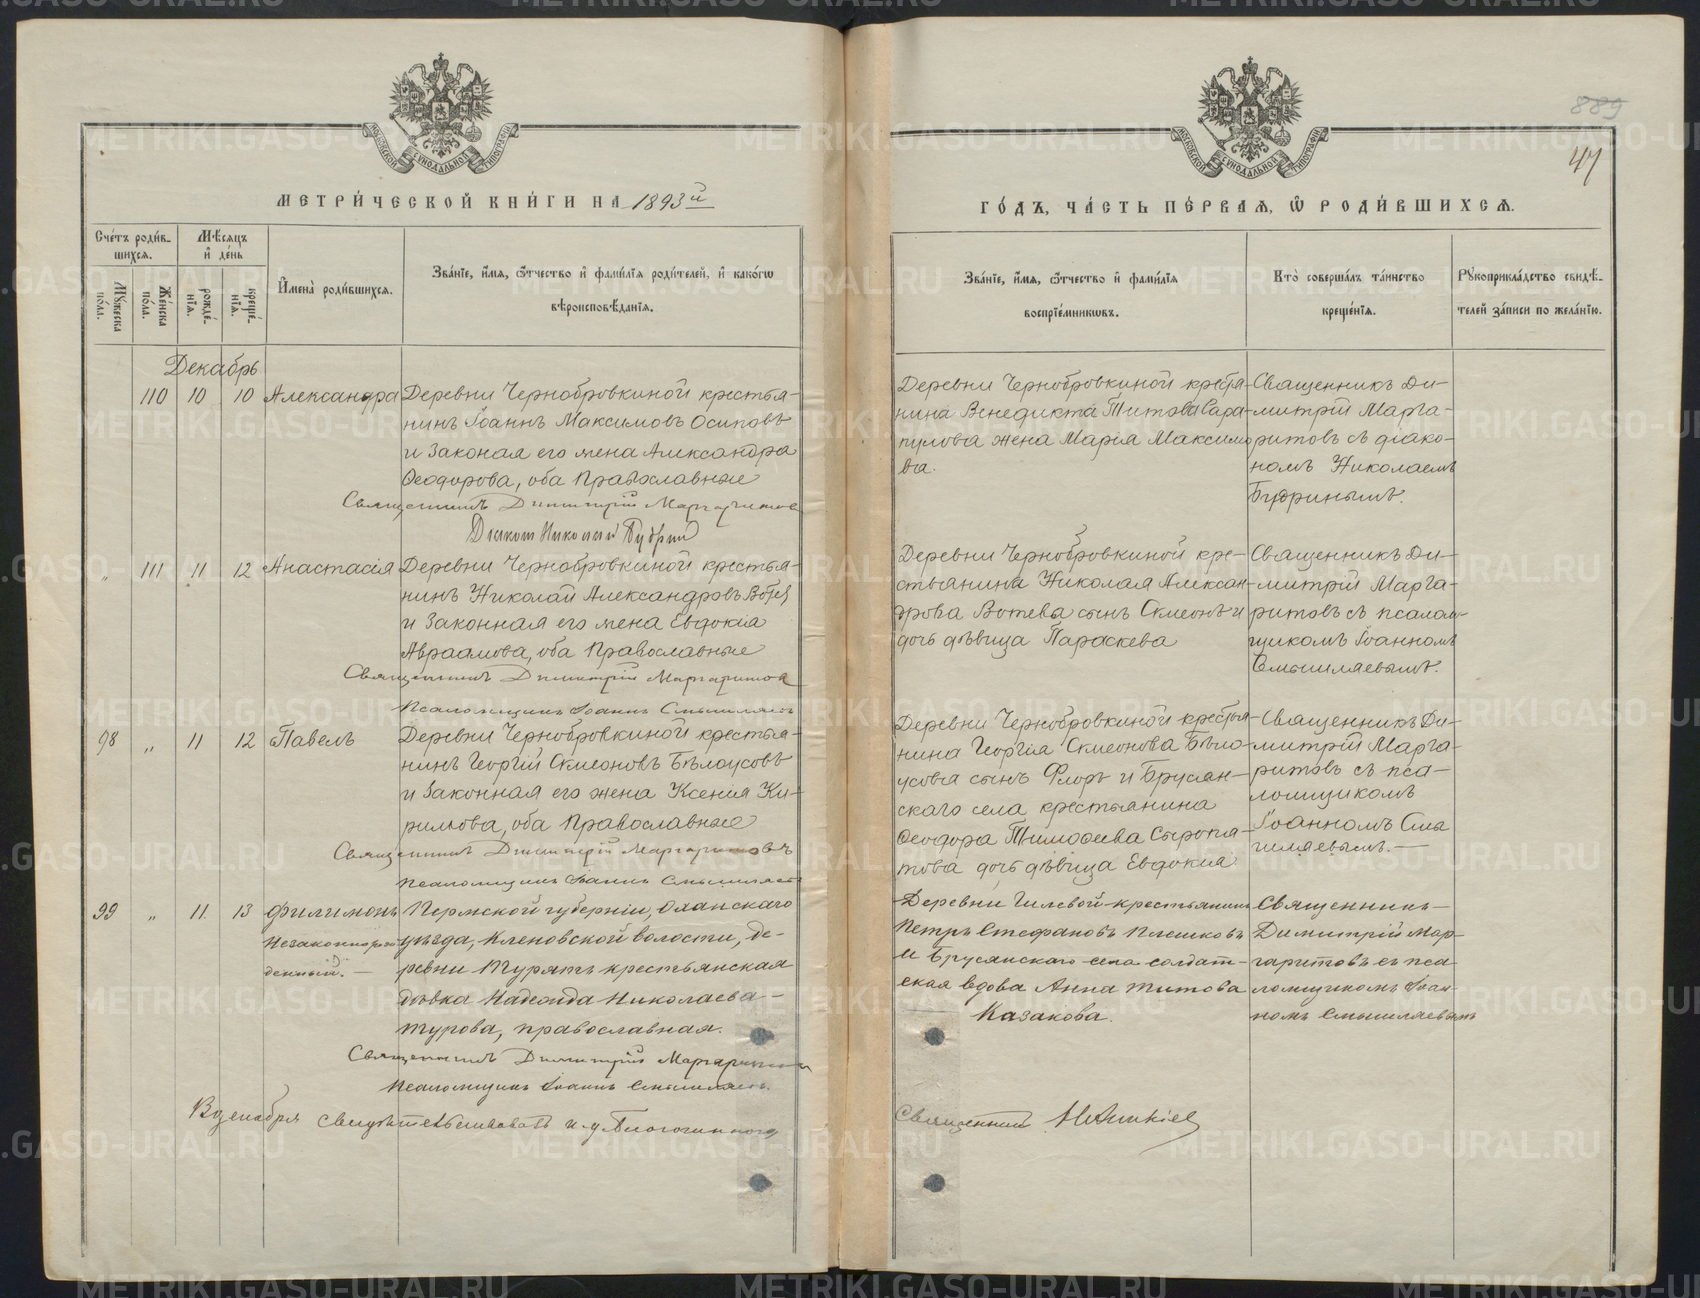 889
47
МОСКОВСКОЙ СѴНОДАЛЬНОЙ ТИПОГРАФІИ
МОСКОВСКОЙ СѴНОДАЛЬНОЙ ТИПОГРАФІИ
МЕТРИ́ЧЕСКОЙ КНИ́ГИ НА 1893й
ГО́ДЪ, ЧА́СТЬ ПЕ́РВАЯ, Ѿ РОДИ́ВШИХСЯ.
Сче́тъ роди́в-
шихся.
Мѣ́сяцъ
и҆ де́нь
Мꙋ́жеска
по́ла.
Же́нска
по́ла.
рожде́-
нїя.
креще́-
нїя.
И҆мена̀ роди́вшихся.
Зва́нїе, и҆́мя, ѻ҆́тчество и҆ фами́лїя роди́телей, и҆ како́гѡ
вѣроисповѣ́данїя.
Зва́нїе, и҆́мя, ѻ҆́тчество и҆ фами́лїя
воспрїе́мникѡвъ.
Кто̀ соверша́лъ та́инство
креще́нїя.
Рꙋкоприкла́дство свидѣ́-
телей за́писи по жела́нїю.
Декабрь
110 10 10 Александра
Деревни Чернобровкиной крестья-
нинъ Іоаннъ Максимовъ Осиповъ
и Законая его жена Александра
Ѳеодорова, оба Православные
Священникъ Димитрій Маргаритовъ
Діаконъ Николай Будринъ
Деревни Чернобровкиной крестья-
нина Венедикта Титова Сара-
пулова жена Марія Максимо
ва.
Священникъ Ди-
митрій Марга-
ритовъ съ діако-
номъ Николаемъ
Будринымъ.
„ 111 11 12 Анастасія
Деревни Чернобровкиной крестья-
нинъ Николай Александровъ Вотев
и Законная его жена Евдокия
Авраамова, оба Православные
Священникъ Димитрій Маргаритовъ
Псаломщикъ Іоаннъ Смышляевъ
Деревни Чернобровкиной кре-
стьянина Николая Алексан-
дрова Вотева сынъ Симеонъ и
дочь дѣвица Параскева
Священникъ Ди-
митрій Марга-
ритовъ съ псалом-
щикомъ Іоанномъ
Смышляевымъ.
98 „ 11 12 Павелъ
Деревни Чернобровкиной крестья-
нинъ Георгій Симеоновъ Бѣлоусовъ
и Законная его жена Ксения Ки-
рилова, оба Православные
Священникъ Димитрій Маргаритовъ
Псаломщикъ Іоаннъ Смышляевъ
Деревни Чернобровкиной крестья-
нина Георгія Симеонова Бѣло-
усова сынъ Флоръ и Брусян-
скаго села крестьянина
Ѳеодора Тимоѳеева Сыропя-
това дочь дѣвица Евдокия
Священникъ Ди-
митрій Марга-
ритовъ съ пса-
ломщикомъ
Іоанномъ Смы
шляевымъ.—
99 „ 11 13 Филимонъ
незаконнорож
денный.—
Пермской губерніи, Оханскаго
уѣзда, Кленовской волости, де-
ревни Турятъ крестьянская
дѣвка Надежда Николаева—
Турова, православная.
Священникъ Димитрій Маргаритовъ
Псаломщикъ Іоаннъ Смышляевъ.
Деревни Гилевой крестьянинъ
Петръ Стефановъ Плешковъ
и Брусянскаго села солдат-
ская вдова Анна Титова
Казакова.
Священникъ—
Димитрій Мар-
гаритовъ съ пса
ломщикомъ Іоан-
номъ Смышляевымъ
декабря свидѣтельствовалъ и. д. Благочиннаго
Священникъ